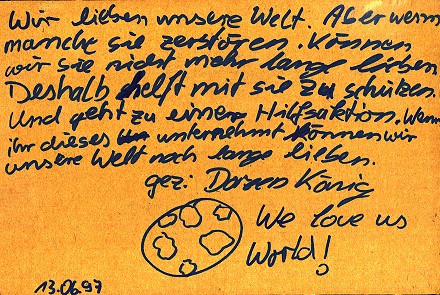 Wir lieben unsere Welt. Aber wenn
manche sie zerstören. Können
wir sie nicht mehr lange lieben.
Deshalb helft mit sie zu schützen.
Und geht zu einer Hilfsaktion. Wenn
ihr dieses unternehmt können wir
unsere Welt noch lange lieben.
gez: König
We love us
World!
13.06.97